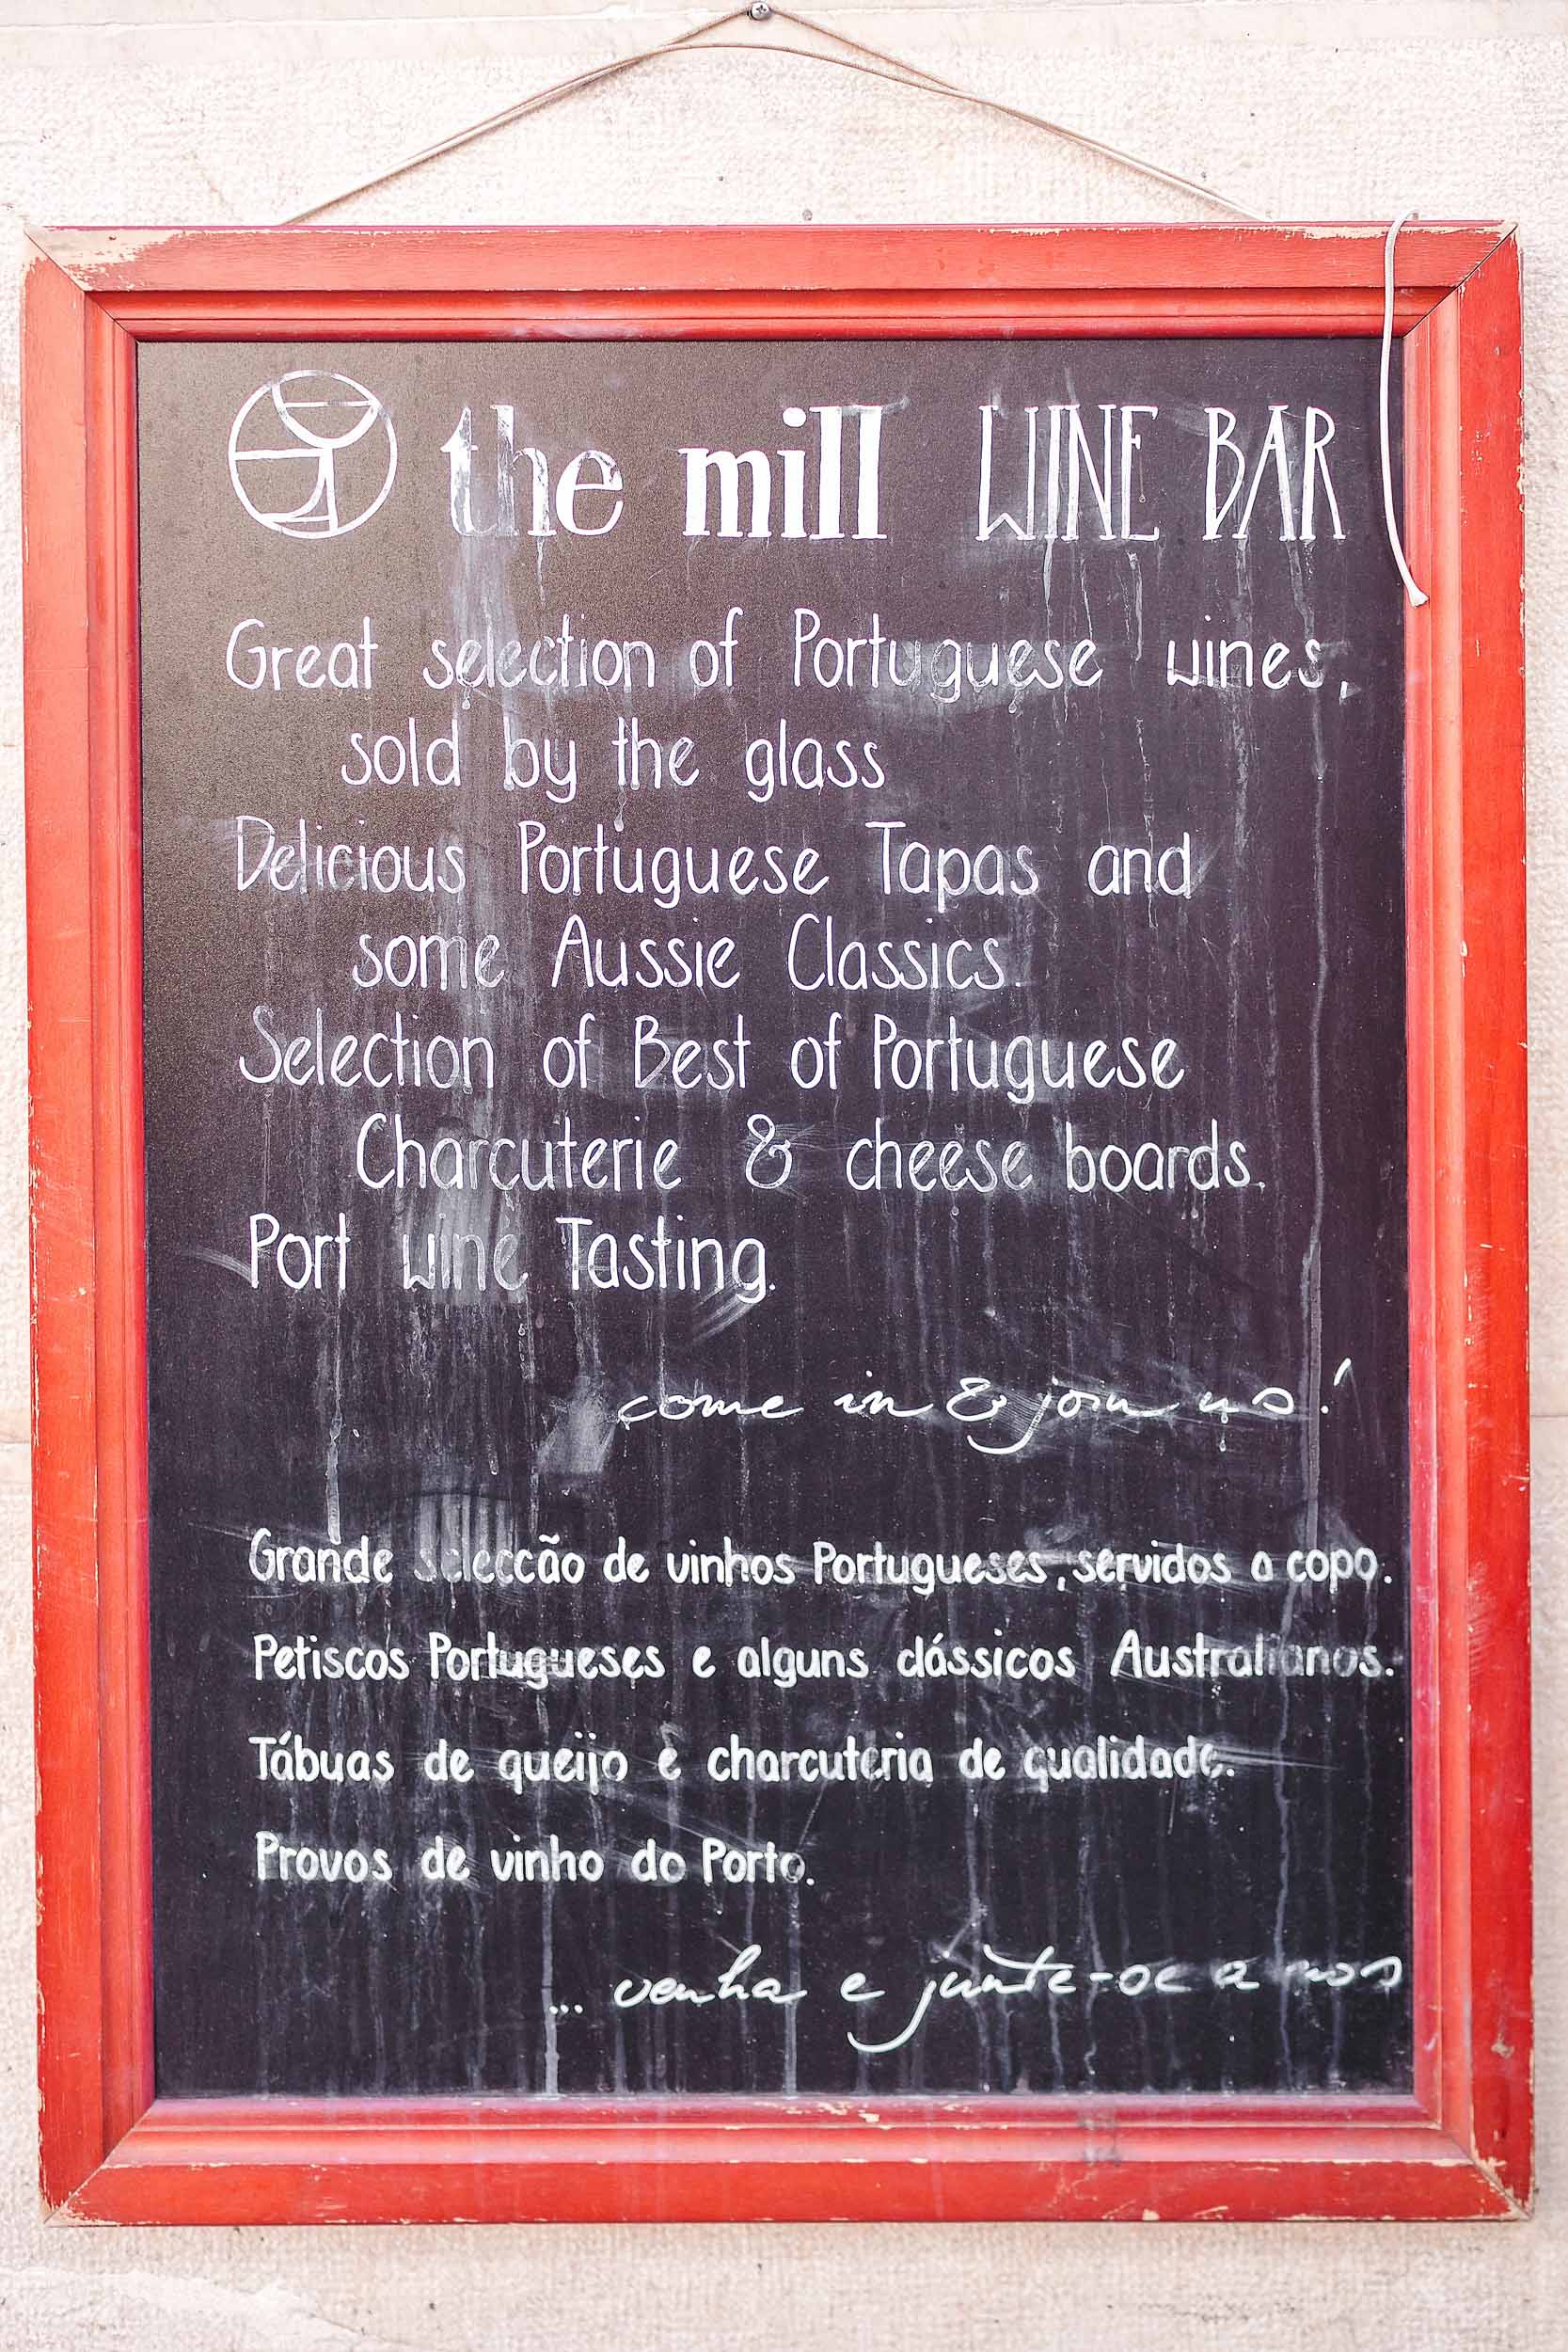 the mill WINE BAR
Great selection of Portuguese wines,
sold by the glass
Delicious Portuguese Tapas and
some Aussie Classics.
Selection of Best of Portuguese
Charcuterie & cheese boards.
Port wine Tasting.
come in & join us!
Grande selecção de vinhos Portugueses, servidos a copo.
Petiscos Portugueses e alguns clássicos Australianos.
Tábuas de queijo e charcutaria de qualidade.
Provas de vinho do Porto.
... venha e junte-se a nós